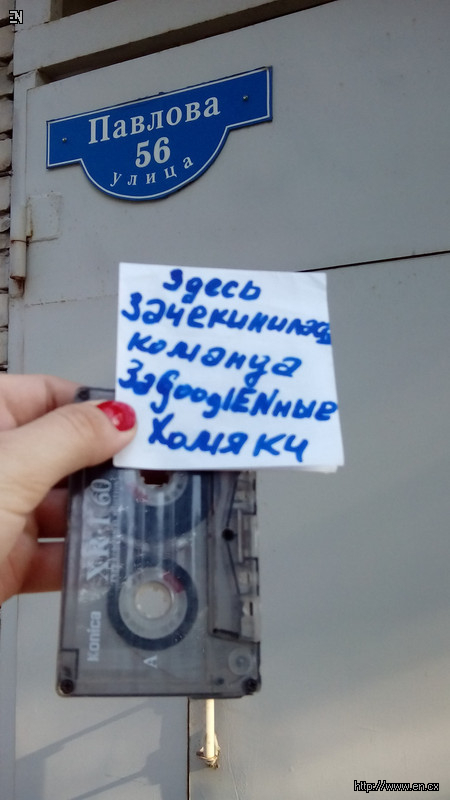 EN
Павлова
56
улица
Здесь
Зачекинилась
команда
ЗаGooglENные
Хомяки
XR-I 60
konica
A
http://www.en.cx